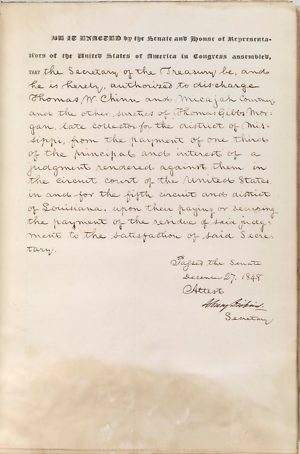 BE IT ENACTED by the Senate and House of Representa-
tives of the United States of America in Congress assembled,
THAT the Secretary of the Treasury be, and
he is hereby, authorized to discharge
Thomas W. Chinn and Micajah Courtney
and the other sureties of Thomas Gibbs Mor-
gan, late collector for the district of Mis-
sippi, from the payment of one third
of the principal and interest of a
judgment rendered against them in
the circuit court of the United States,
in and for the fifth circuit and district
of Louisiana, upon their paying or securing
the payment of the residue of said judg-
ment to the satisfaction of said Secre-
tary.
Passed the Senate
December 27, 1848
Attest
Secretary